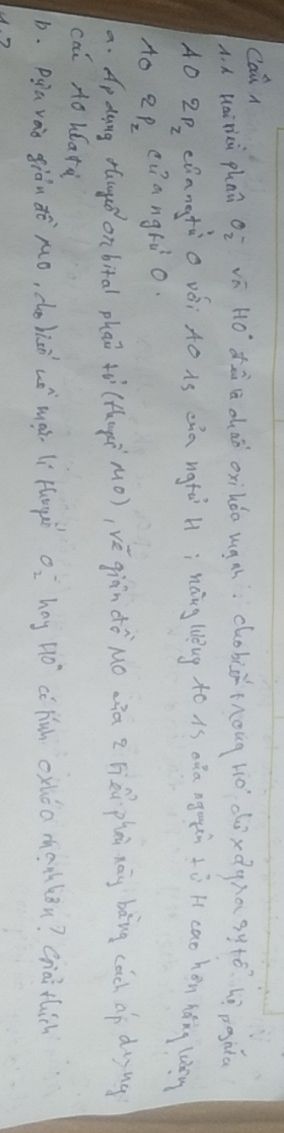 Câu 1
1.1 Hai tiểu phân O₂⁻ và HO° đều là chất oxi hóa mạnh; cho biết trong HO° chỉ xảy ra sự tổ hợp giữa
AO 2p₂ của ngtử O với AO 1s của ngtử H; năng lượng AO 1s của nguyên tử H cao hơn năng lượng
AO 2p₂ của ngtử O.
a. Áp dụng thuyết orbital phân tử (thuyết MO), vẽ giản đồ MO của 2 tiểu phân này bằng cách áp dụng
các AO hóa trị
b. Dựa vào giản đồ MO, cho biết về mặt lí thuyết O₂⁻ hay HO° có tính oxi hóa mạnh hơn? Giải thích